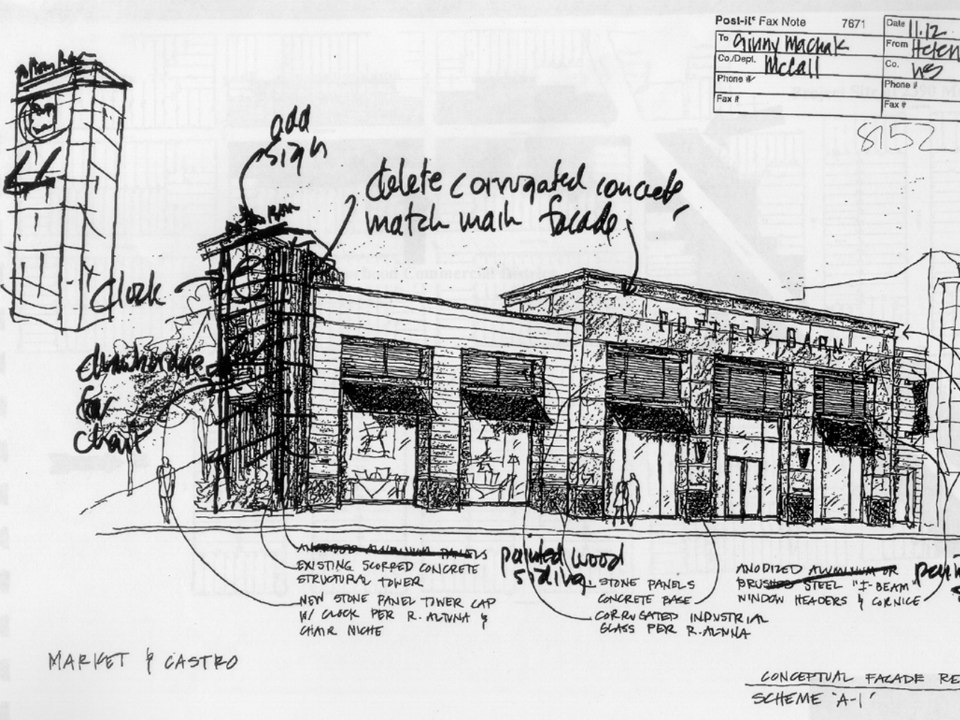 Post-it® Fax Note 7671
Date 11.12
To Ginny Machak
From Helen
Co./Dept. McCall
Co.
Phone #
Phone #
Fax #
Fax #
8152
add
sign
delete corrugated concrete,
match main facade
Clock
for
chair
POTTERY BARN
EXISTING SCORED CONCRETE
STRUCTURAL TOWER
NEW STONE PANEL TOWER CAP
W/ CLOCK PER R. ALTUNA &
CHAIR NICHE
painted wood
siding
STONE PANELS
CONCRETE BASE
CORRUGATED INDUSTRIAL
GLASS PER R. ALTUNA
ANODIZED ALUMINUM OR
BRUSHED STEEL "I-BEAM
WINDOW HEADERS & CORNICE
MARKET & CASTRO
CONCEPTUAL FACADE RE
SCHEME 'A-1'